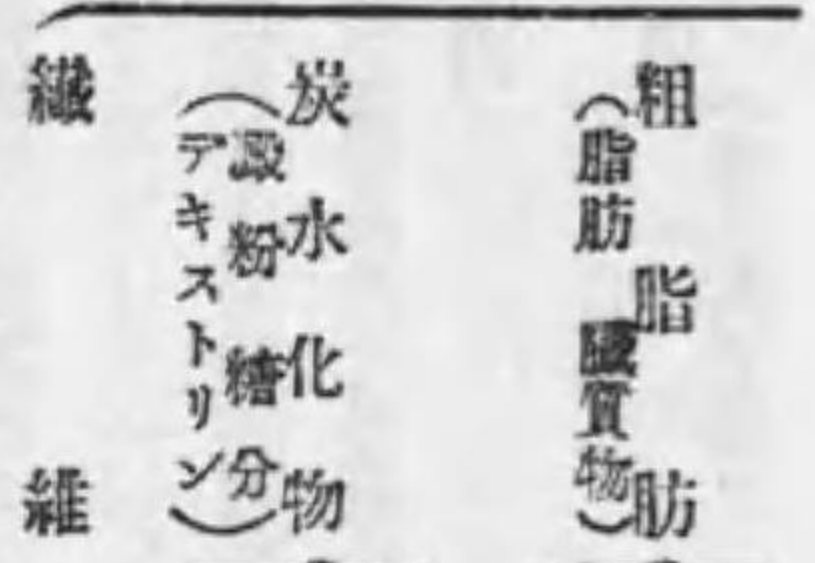 粗脂肪
(脂肪 臓質物)
炭水化物
(澱粉 糖分
デキストリン)
繊維